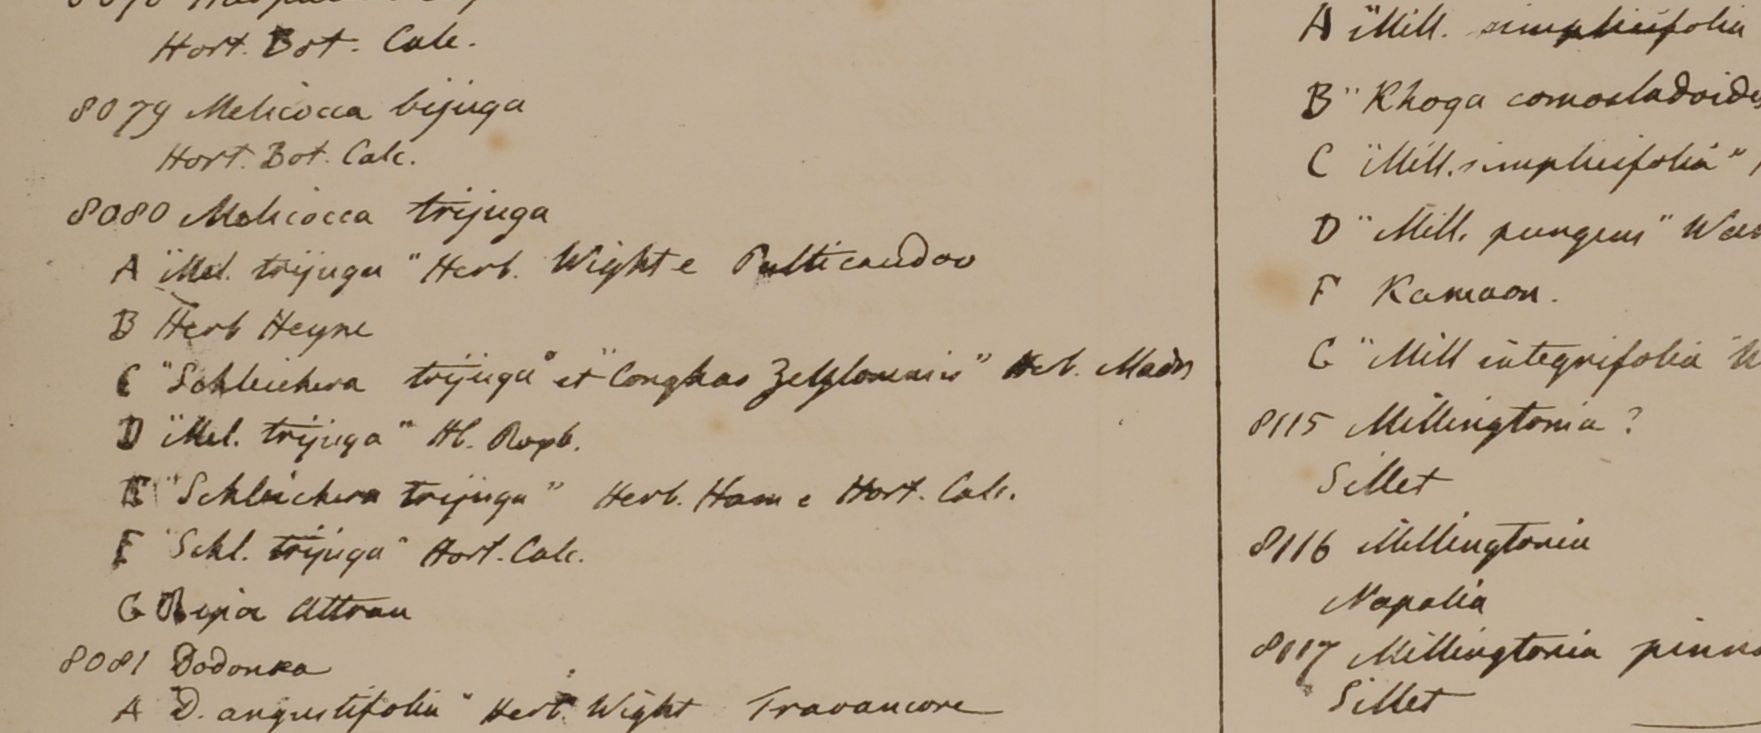 Hort. Bot. Calc.
8079 Melicocca bijuga
Hort. Bot. Calc.
8080 Melicocca trijuga
A "Mel. trijuga" Herb. Wight e
B Herb Heyne
C "Schleichera trijuga" et "Conghas Zeylonensis" Herb. Madr
D "Mel. trijuga" Hb. Roxb.
E "Schleichera trijuga" Herb. Ham e Hort. Calc.
F "Schl. trijuga" Hort. Calc.
G Attran
8081 Dodonaea
A "D. angustifolia" Herb. Wight Travancore
A "Mill. simplicifolia
B "Rhoga comocladoides
C "Mill. simplicifolia"
D "Mill. pungens"
F Kamaon.
G "Mill integrifolia"
8115 Millingtonia ?
Sillet
8116 Millingtonia
Napalia
8117 Millingtonia pinna
Sillet